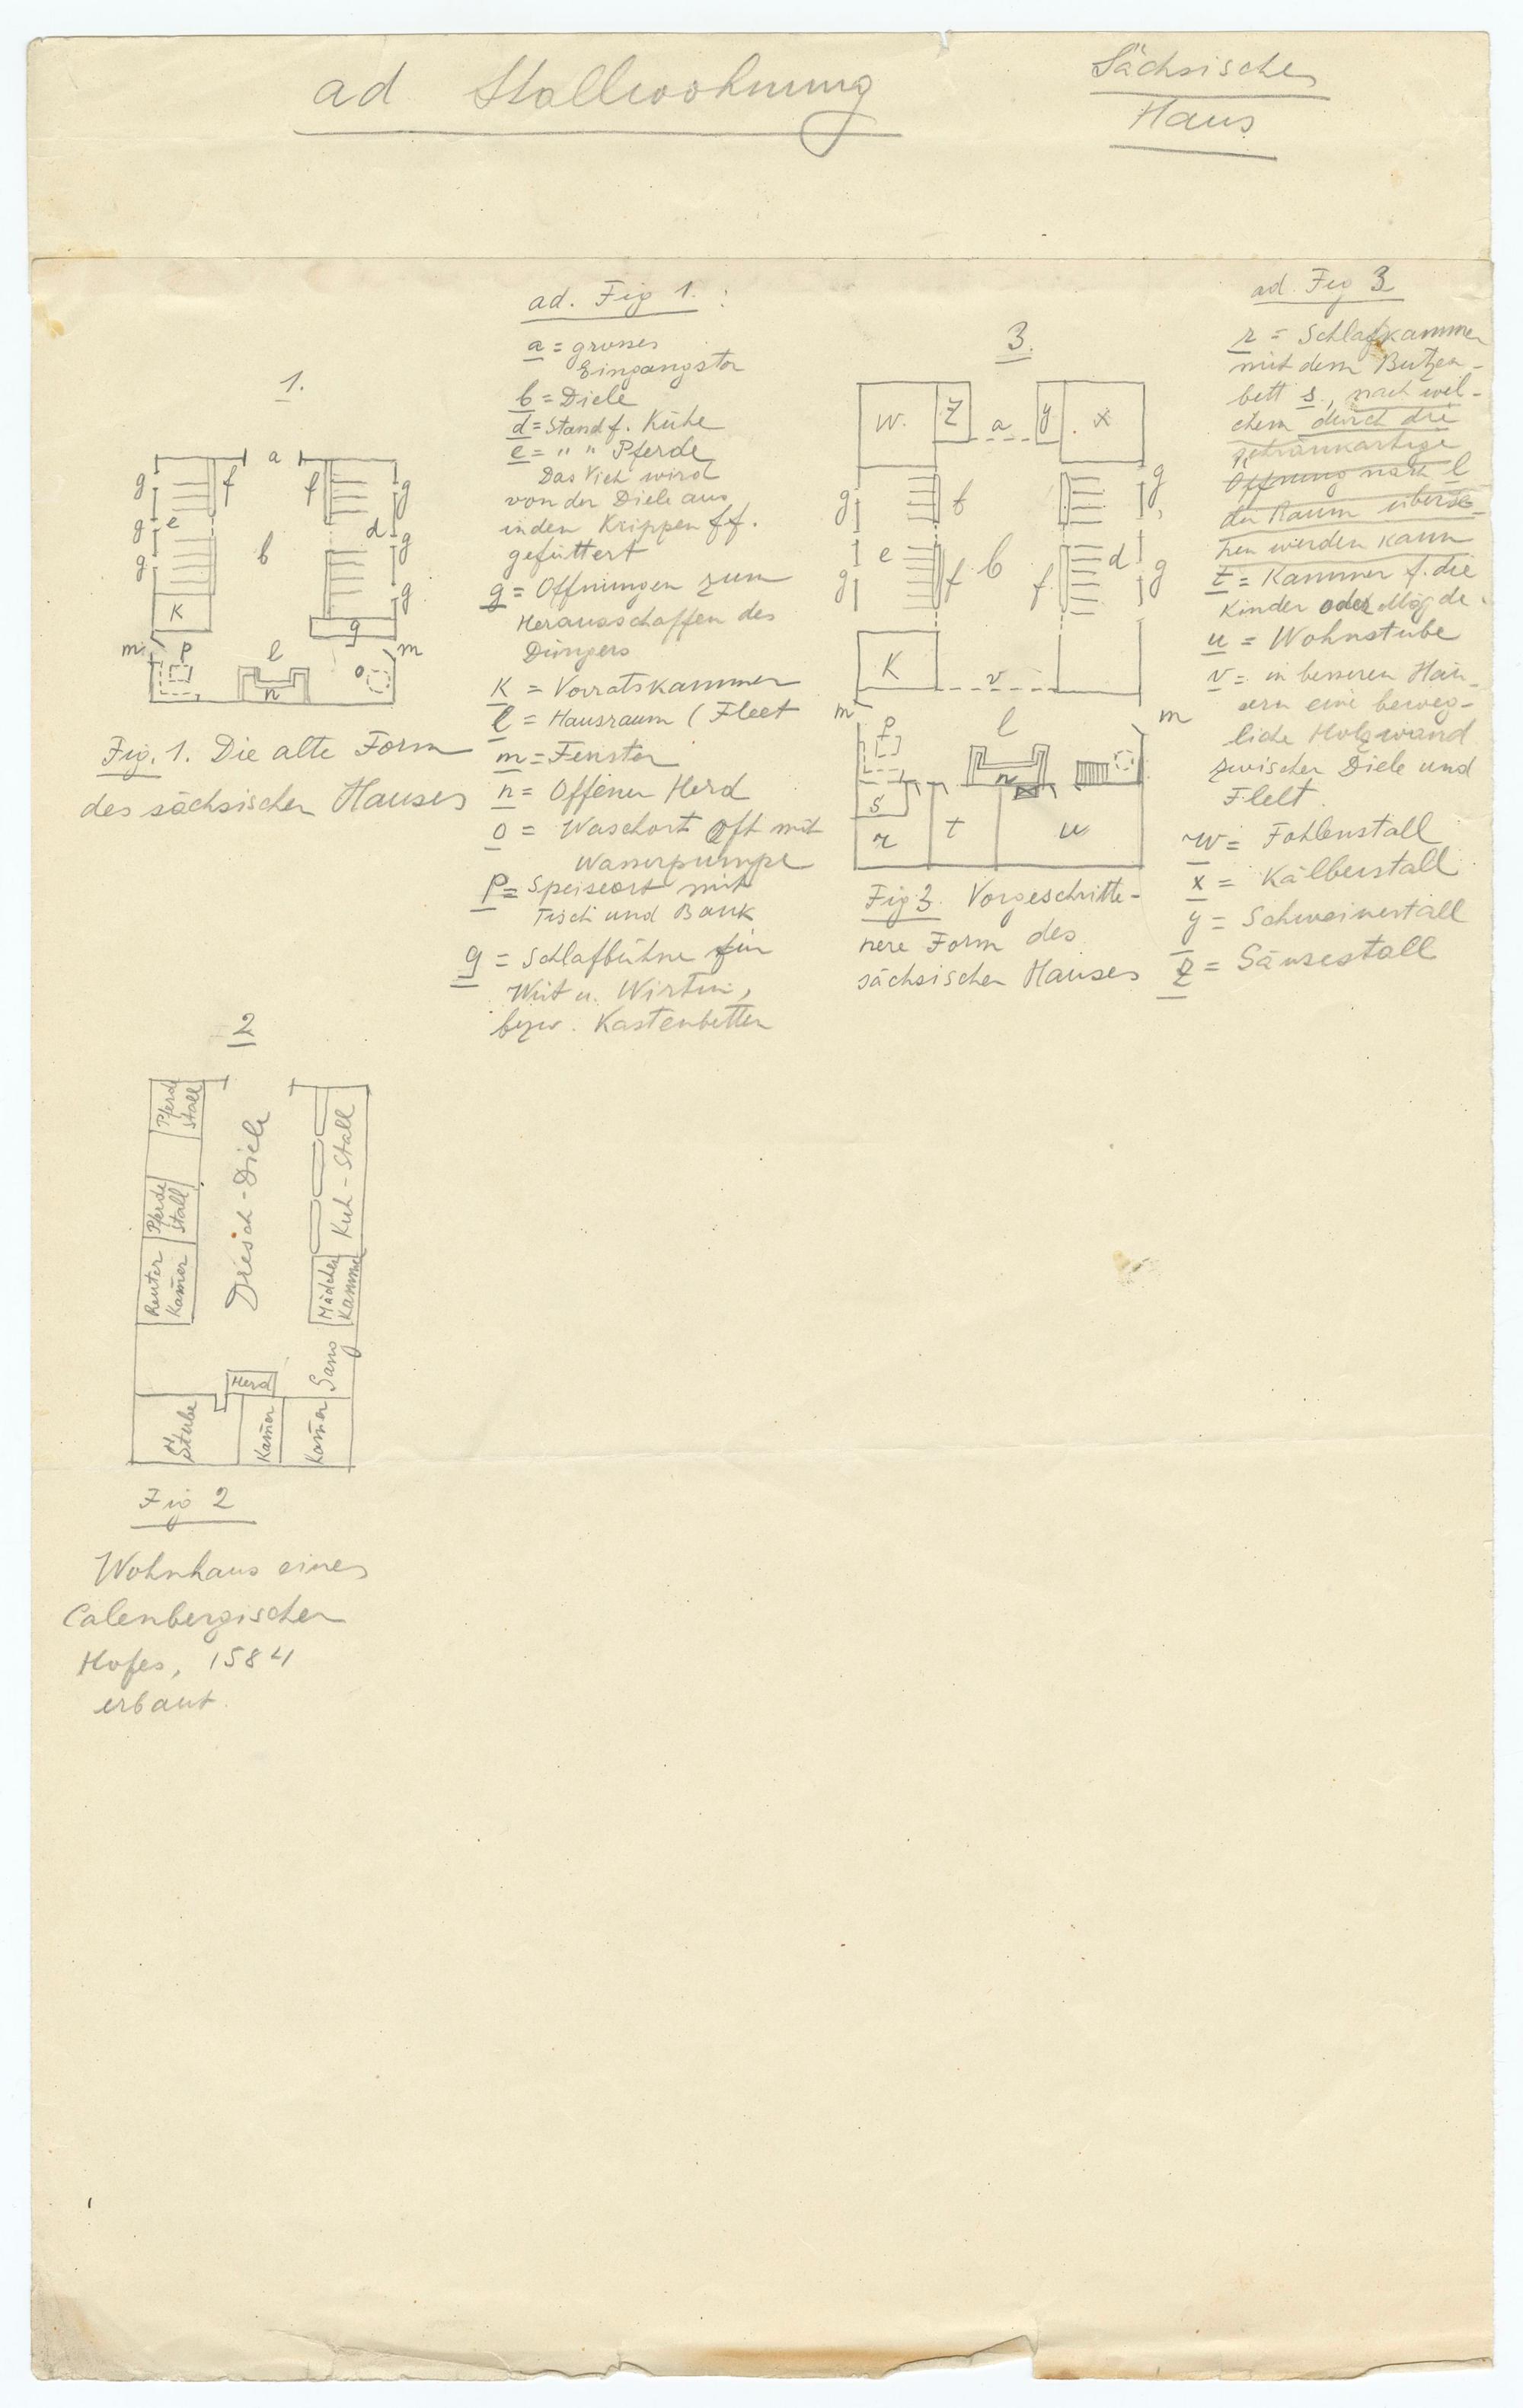 ad Stallwohnung
Sächsisches
Haus
1.
g
f
a
f
g
g
e
b
d
g
g
g
K
g
m
p
l
o
m
n
Fig. 1. Die alte Form
des sächsischen Hauses
ad. Fig 1. :
a = grosses
Eingangstor
b = Diele
d = Stand f. Kühe
e = " " Pferde
Das Vieh wird
von der Diele aus
in den Krippen ff.
gefüttert
g = Öffnungen zum
Herausschaffen des
Düngers
K = Vorratskammer
l = Hausraum (Fleet
m = Fenster
n = Offener Herd
o = Waschort oft mit
Wasserpumpe
p = Speiseort mit
Tisch und Bank
q = Schlafbühne für
Wirt u. Wirtin,
bezw. Kastenbetten
2
Pferde
Stall
Pferde
Stall
Reuter
Kam̄er
Dresch-Diele
Kuh-Stall
Mädchen
Kammer
Gang
Herd
Stube
Kam̄er
Kam̄er
Fig 2
Wohnhaus eines
Calenbergischen
Hofes, 1584
erbaut.
3.
w.
z
a
y
x
g
f
g
e
b
d
g
f
f
g
K
v
m
p
l
m
n
s
r
t
u
Fig 3. Vorgeschritte-
nere Form des
sächsischen Hauses
ad. Fig 3
r = Schlafkammer
mit dem Butzen-
bett s., nach wel-
chem durch die
schrankartige
Öffnung nach l
der Raum überse-
hen werden kann
t = Kammer f. die
Kinder oder Mägde.
u = Wohnstube
v = in besseren Häu-
sern eine beweg-
liche Holzwand
zwischen Diele und
Flett.
w = Fohlenstall
x = Kälberstall
y = Schweinestall
z = Gänsestall